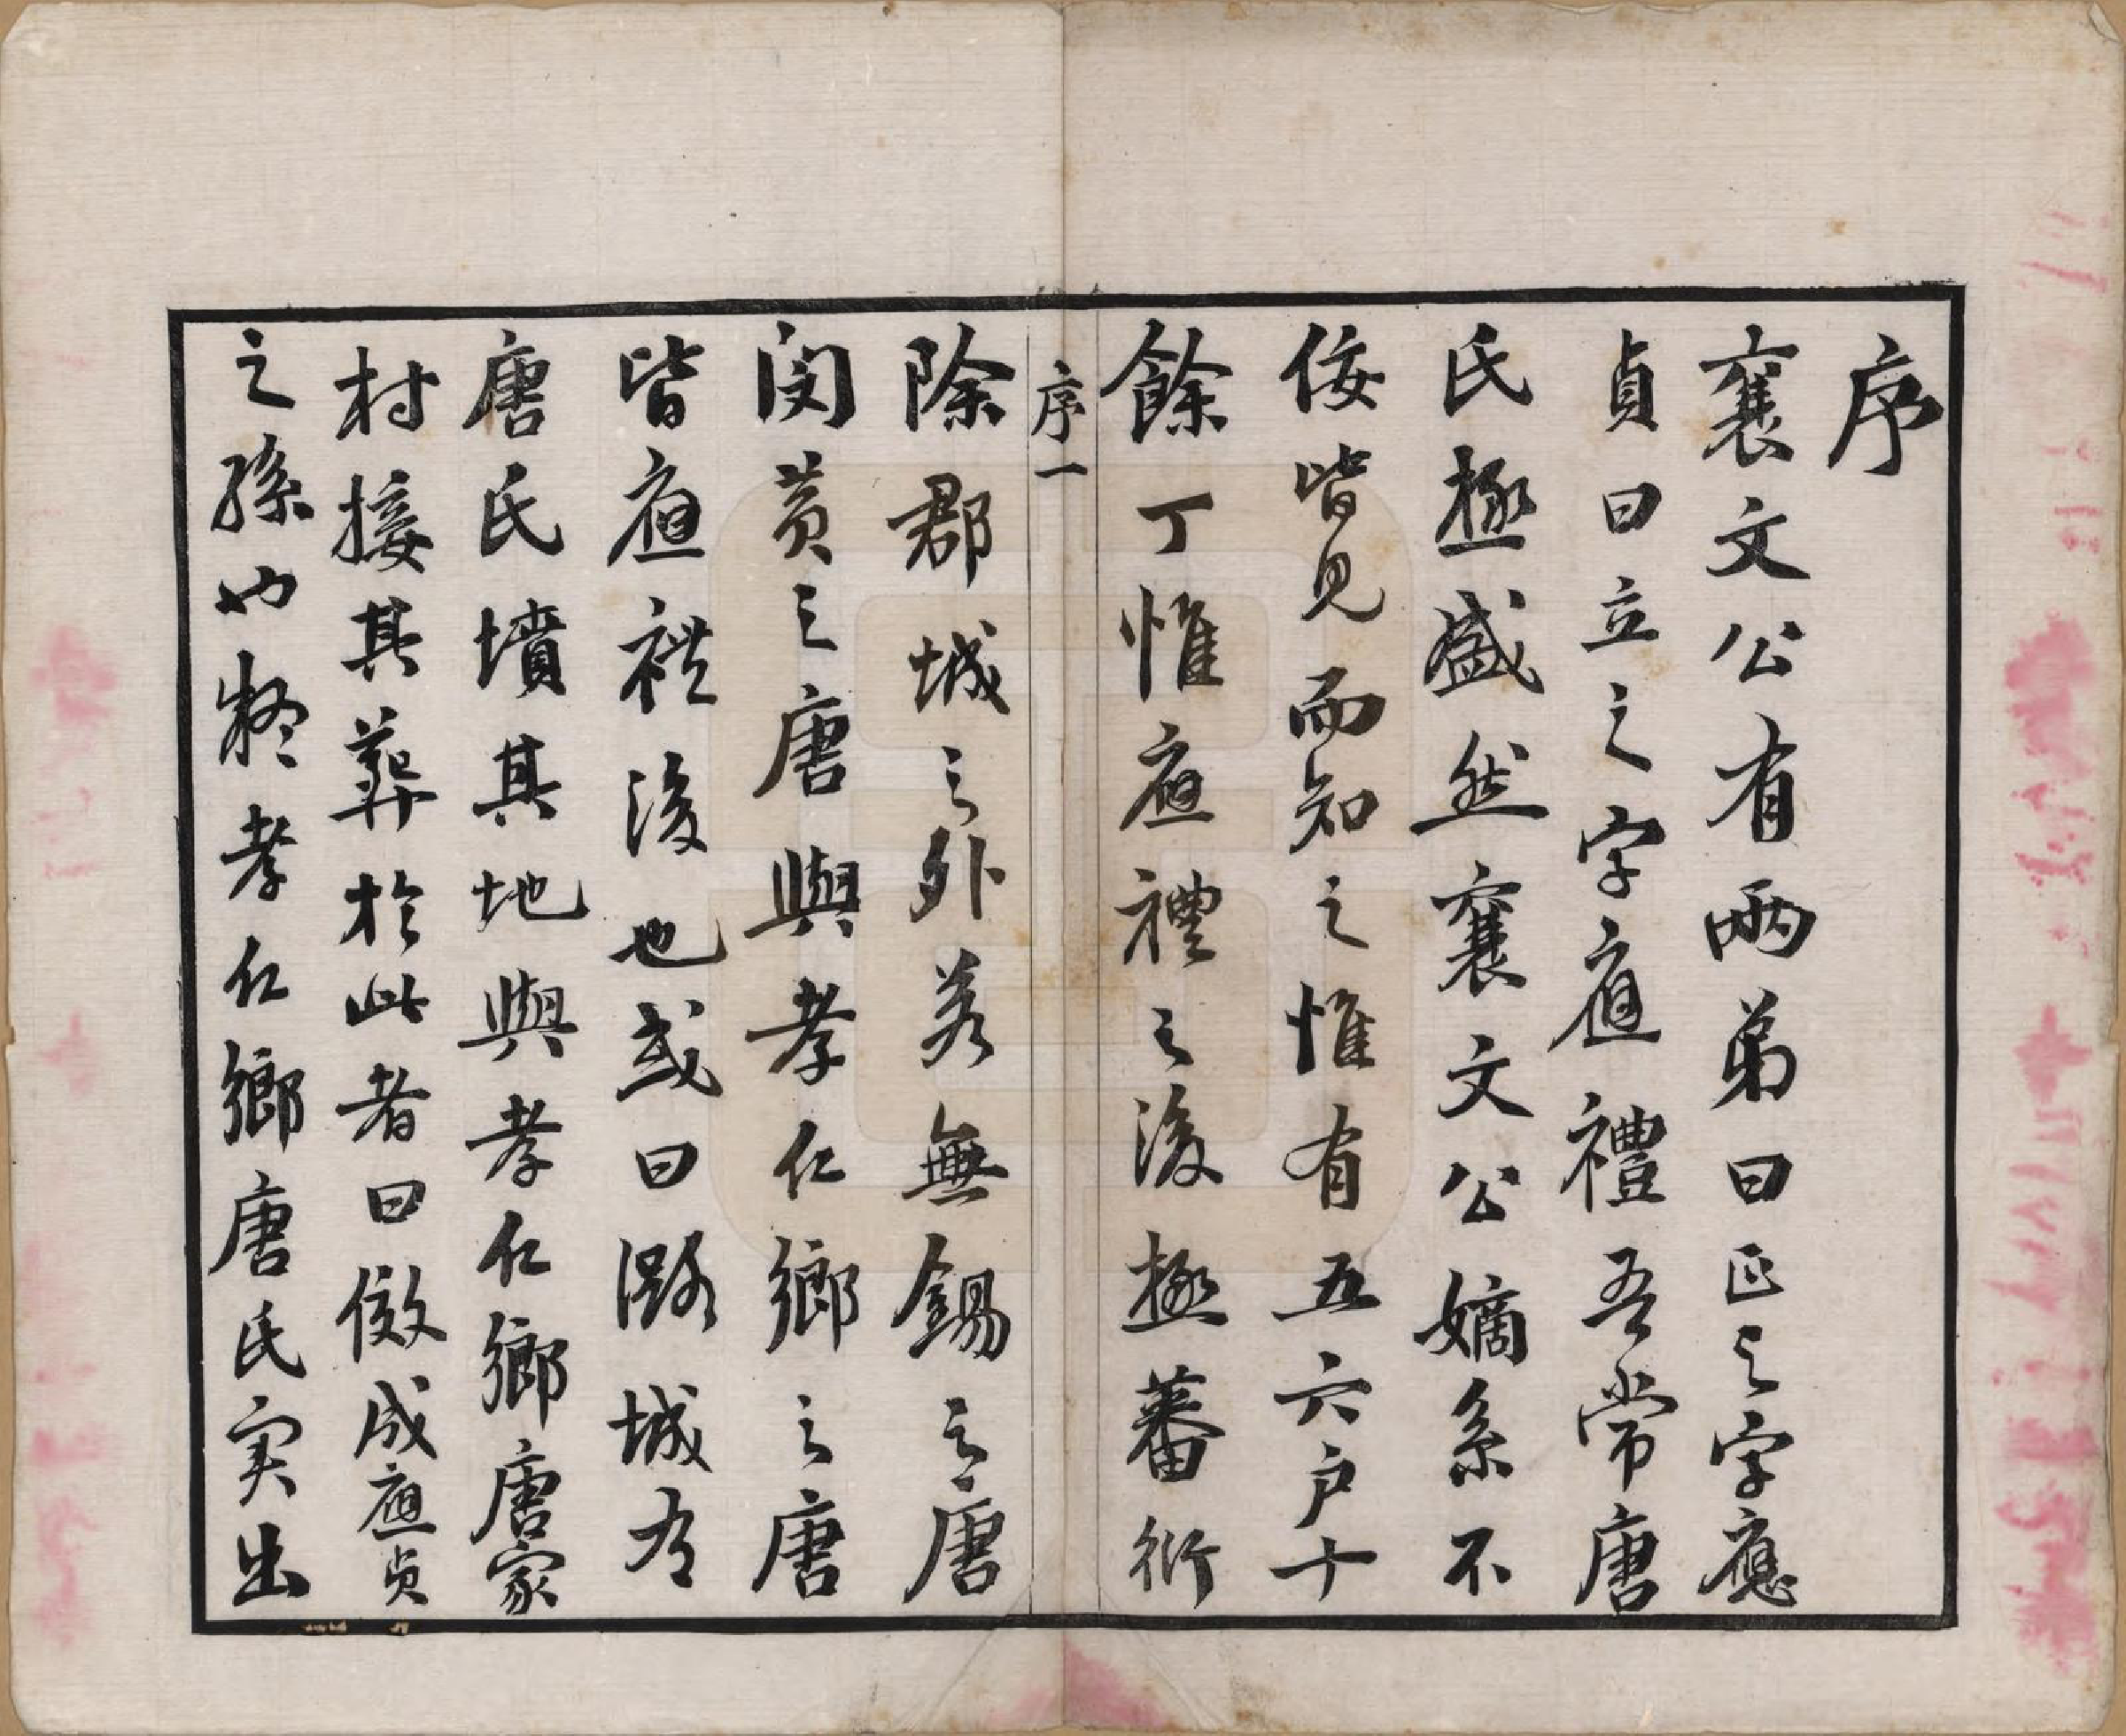 序
襄文公有兩弟曰正之字應
貞曰立之字應禮吾常唐
氏極盛然襄文公嫡系不
佞皆見而知之惟有五六戶十
餘丁惟應禮之後極蕃衍
序一
除郡城之外若無錫之唐
閔黃之唐與孝仁鄉之唐
皆應禮後也或曰潞城有
唐氏墳其地與孝仁鄉唐家
村接其葬於此者曰傚成應貞
之孫也疑孝仁鄉唐氏实出